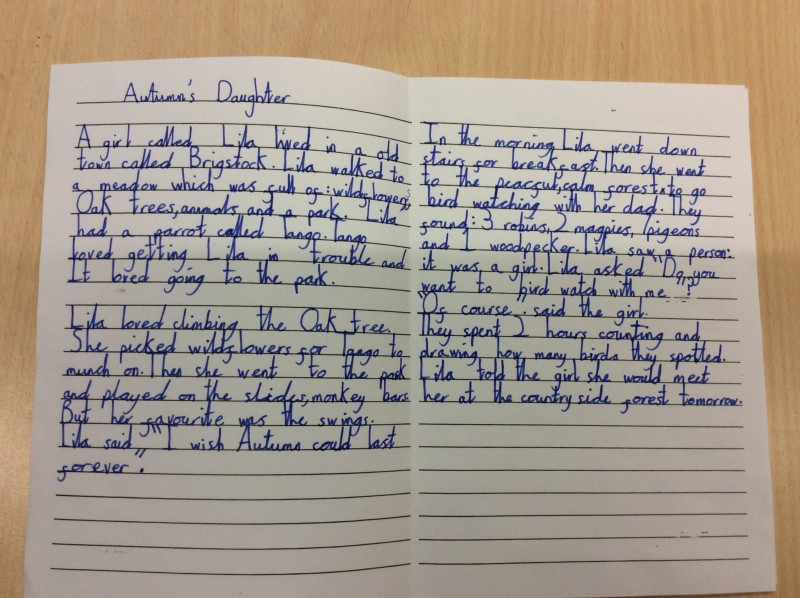 Autumn's Daughter
A girl called Lila lived in a old
town called Brigstock. Lila walked to
a meadow which was full of: wildflowers,
Oak trees, animals, and a park. Lila
had a parrot called Tango. Tango
loved getting Lila in trouble and
It loved going to the park.
Lila loved climbing the Oak tree.
She picked wildflowers for to
munch on. Then she went to the park
and played on the slides, monkey bars.
But her favourite was the swings.
Lila said, "I wish Autumn could last
forever".
In the morning Lila went down
stairs for breakfast. Then she went
to the peacful, calm forest to go
bird watching with her dad. They
found: 3 robins, 2 magpies, 1 pigeons
and 1 woodpecker. Lila saw a person:
it was a girl. Lila asked "Do you
want to bird watch with me"?
"Of course". said the girl.
They spent 2 hours counting and
drawing how many birds they spotted.
Lila told the girl she would meet
her at the country side forest tomorrow.